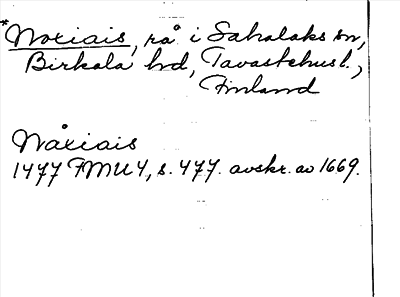 *Noxiais, rå i Sahalaks sn,
Birkala hd, Tavastehus l.,
Finland
Nåxiais
1477 FMU 4, s. 477. avskr. av 1669.